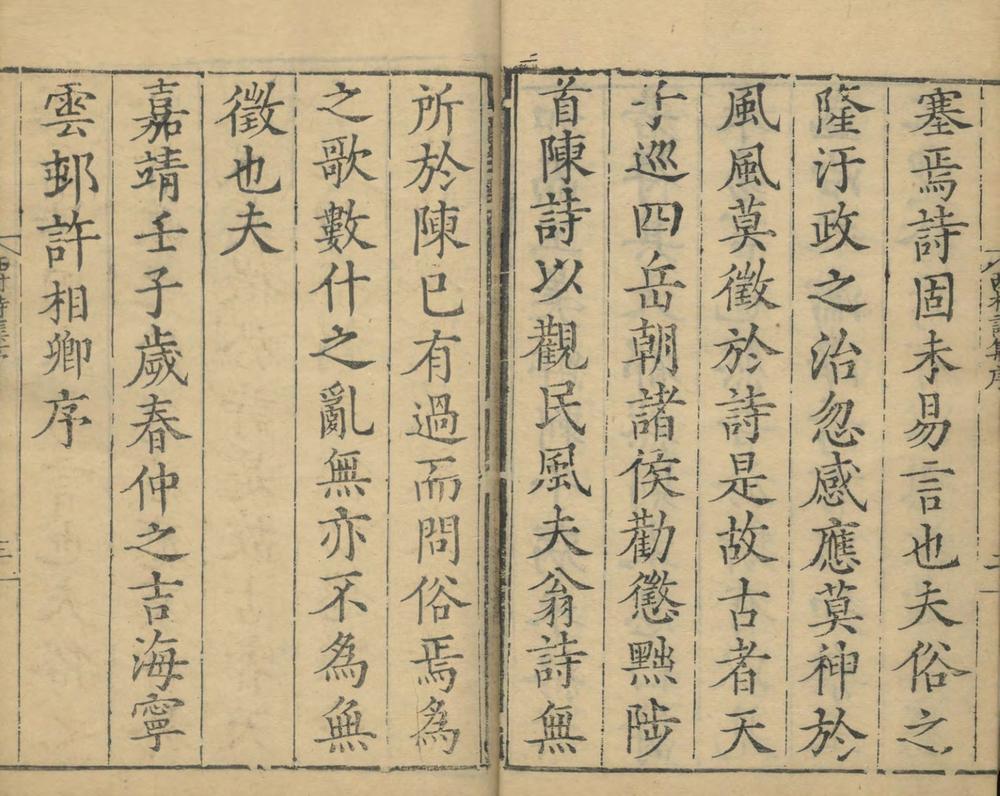 塞焉詩固未易言也夫俗之
隆汙政之治忽感應莫神於
風風莫徵於詩是故古者天
子巡四岳朝諸侯勸懲黜陟
首陳詩以觀民風夫翁詩無
所於陳已有過而問俗焉為
之歌數什之亂無亦不為無
徵也夫
嘉靖壬子歲春仲之吉海寧
雲邨許相卿序